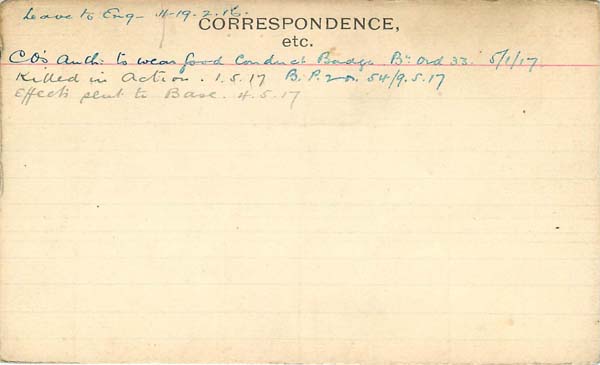 Leave to Eng - 11-19.2.16.
CORRESPONDENCE,
etc.
CO's Auth. to wear Good Conduct Badge Bn Ord 33. 5/1/17.
Killed in Action. 1.5.17 B.P.2 54/9.5.17
Effects sent to Base. 4.5.17